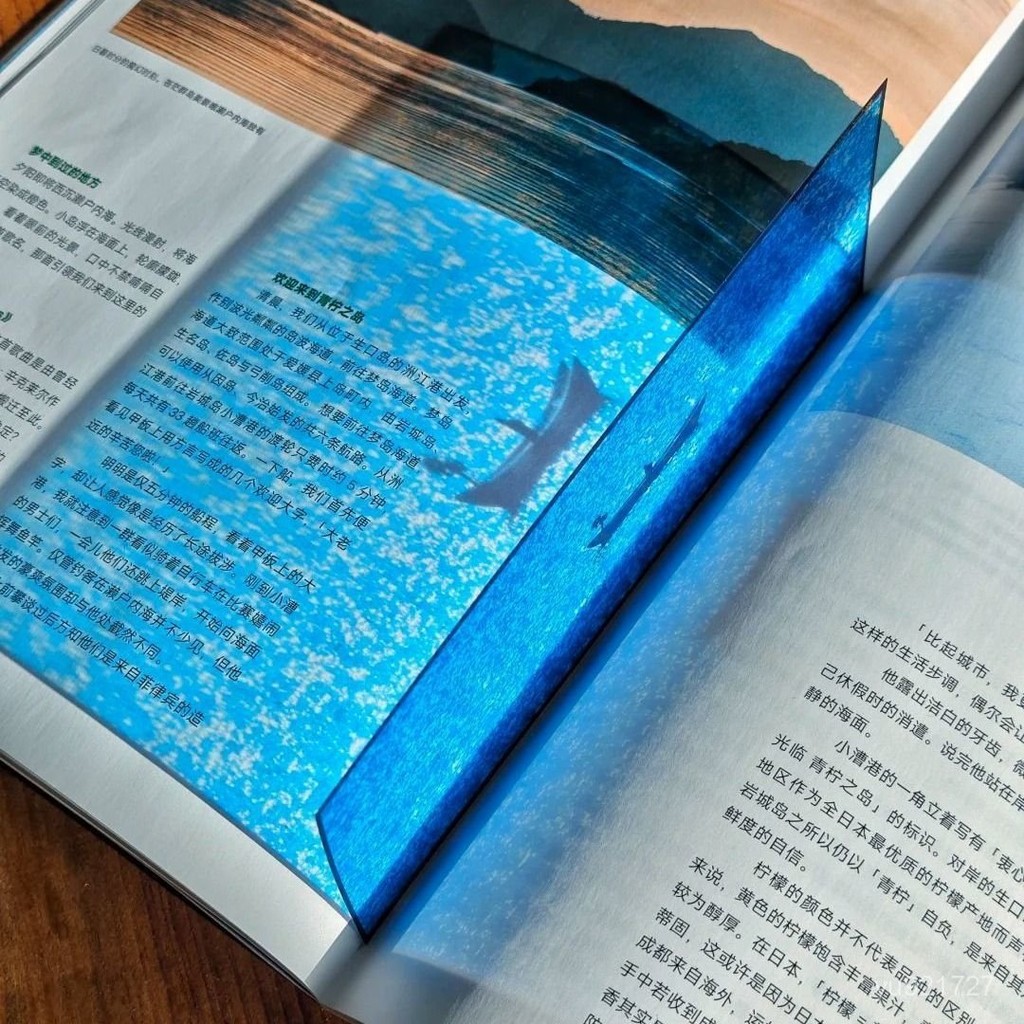 日暮时分的魔幻时刻，芸芸群岛美景唯濑户内海独有
梦中到过的地方
夕阳即将西沉濑户内海，光线漫射，将海
空染成橙色。小岛浮在海面上，轮廓朦胧，
看着眼前的光景，口中不禁喃喃自
首歌名，那首引领我们来到这里的
首歌曲是由曾经
辛克莱尔作
搬迁至此。
欢迎来到青柠之岛
清晨，我们从位于生口岛的洲江港出发，
作别波光粼粼的岛波海道，前往梦岛海道。梦岛
海道大致范围处于爱媛县上岛町内，由岩城岛、
生名岛、佐岛与弓削岛组成。想要前往梦岛海道
可以使用从因岛、今治始发的共六条航路。从洲
江港前往岩城岛小漕港的渡轮只需时约 5 分钟
每天共有 33 趟船班往返。一下船，我们首先便
看见甲板上用方言写成的几个欢迎大字，「大老
远的辛苦您嘞！」
明明是仅五分钟的船程，看着甲板上的大
字，却让人感觉像是经历了长途拔涉。刚到小漕
港，我就注意到一群看似骑着自行车在比赛嬉闹
的男士们，一会儿他们还跳上堤岸，开始向海面
挥舞鱼竿。仅管钓客在濑户内海并不少见，但他
发的豪爽氛围却与他处截然不同。
前攀谈过后方知他们是来自菲律宾的造
「比起城市，我
这样的生活步调，偶尔会让
他露出洁白的牙齿，微
己休假时的消遣。说完他站在岸
静的海面。
小漕港的一角立着写有「衷心
光临 青柠之岛」的标识。对岸的生口
地区作为全日本最优质的柠檬产地而声
岩城岛之所以仍以「青柠」自负，是来自其
鲜度的自信。
柠檬的颜色并不代表品种的区别
来说，黄色的柠檬饱含丰富果汁，
较为醇厚。在日本，「柠檬
蒂固，这或许是因为日本
成都来自海外，运
手中若收到成
香其实